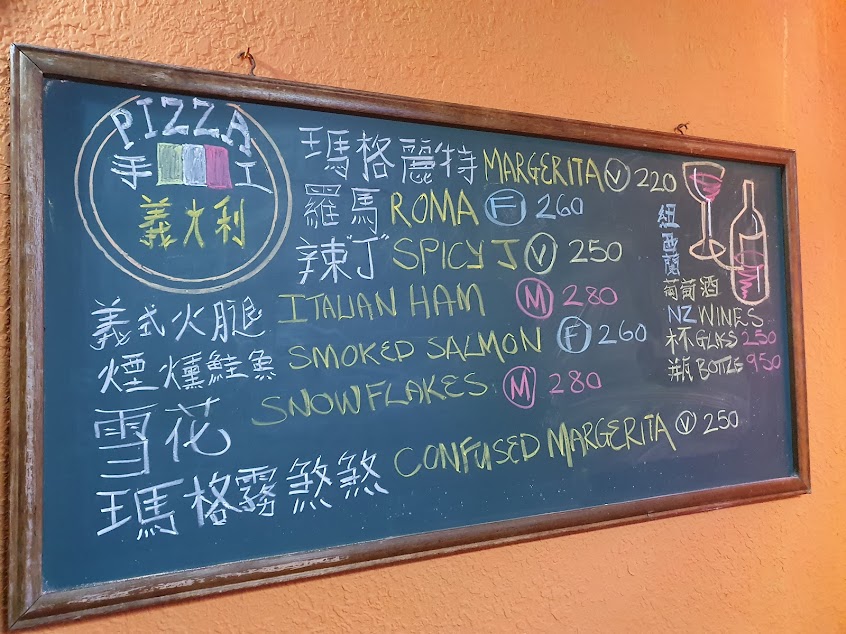 PIZZA
手工
義大利
瑪格麗特 MARGERITA V 220
羅馬 ROMA F 260
辣ㄐ丁 SPICY J V 250
義式火腿 ITALIAN HAM M 280
煙燻鮭魚 SMOKED SALMON F 260
雪花 SNOWFLAKES M 280
瑪格霧煞煞 CONFUSED MARGERITA V 250
紐西蘭
葡萄酒
NZ WINES
杯 GLASS 250
瓶 BOTTLE 950